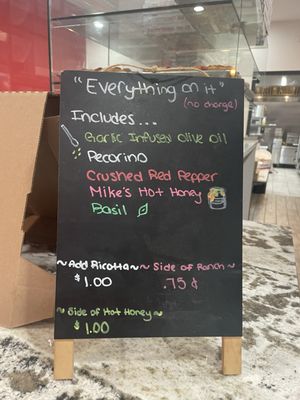 "Everything on it"
(no change)
Includes...
Garlic Infused Olive Oil
Pecorino
Crushed Red Pepper
Mike's Hot Honey
Basil
~Add Ricotta~ ~ Side of Ranch~
$1.00 .75¢
~Side of Hot Honey~
$1.00